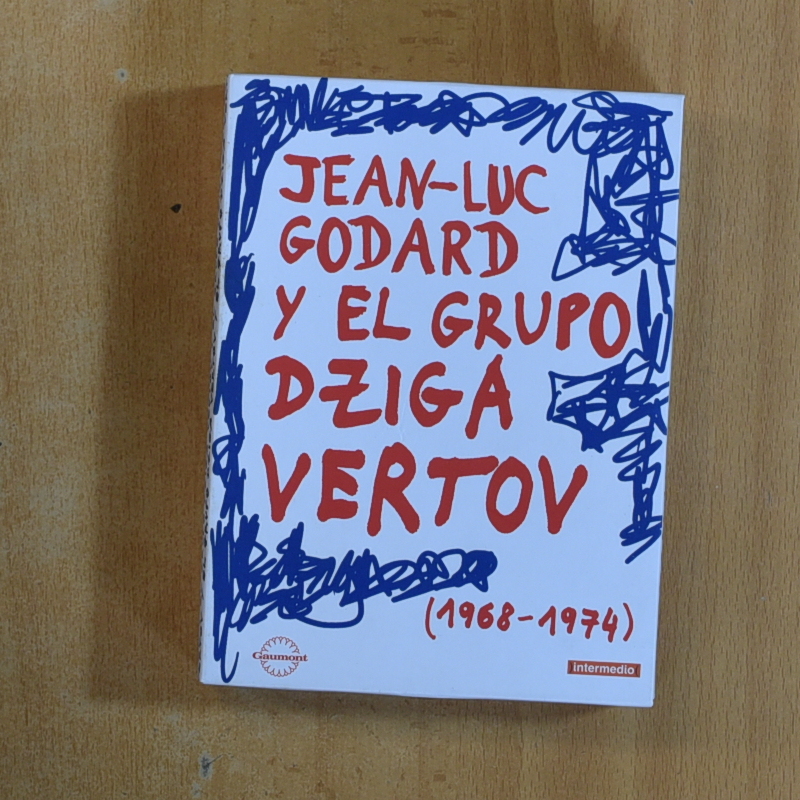 JEAN-LUC
GODARD
Y EL GRUPO
DZIGA
VERTOV
(1968-1974)
Gaumont
intermedio